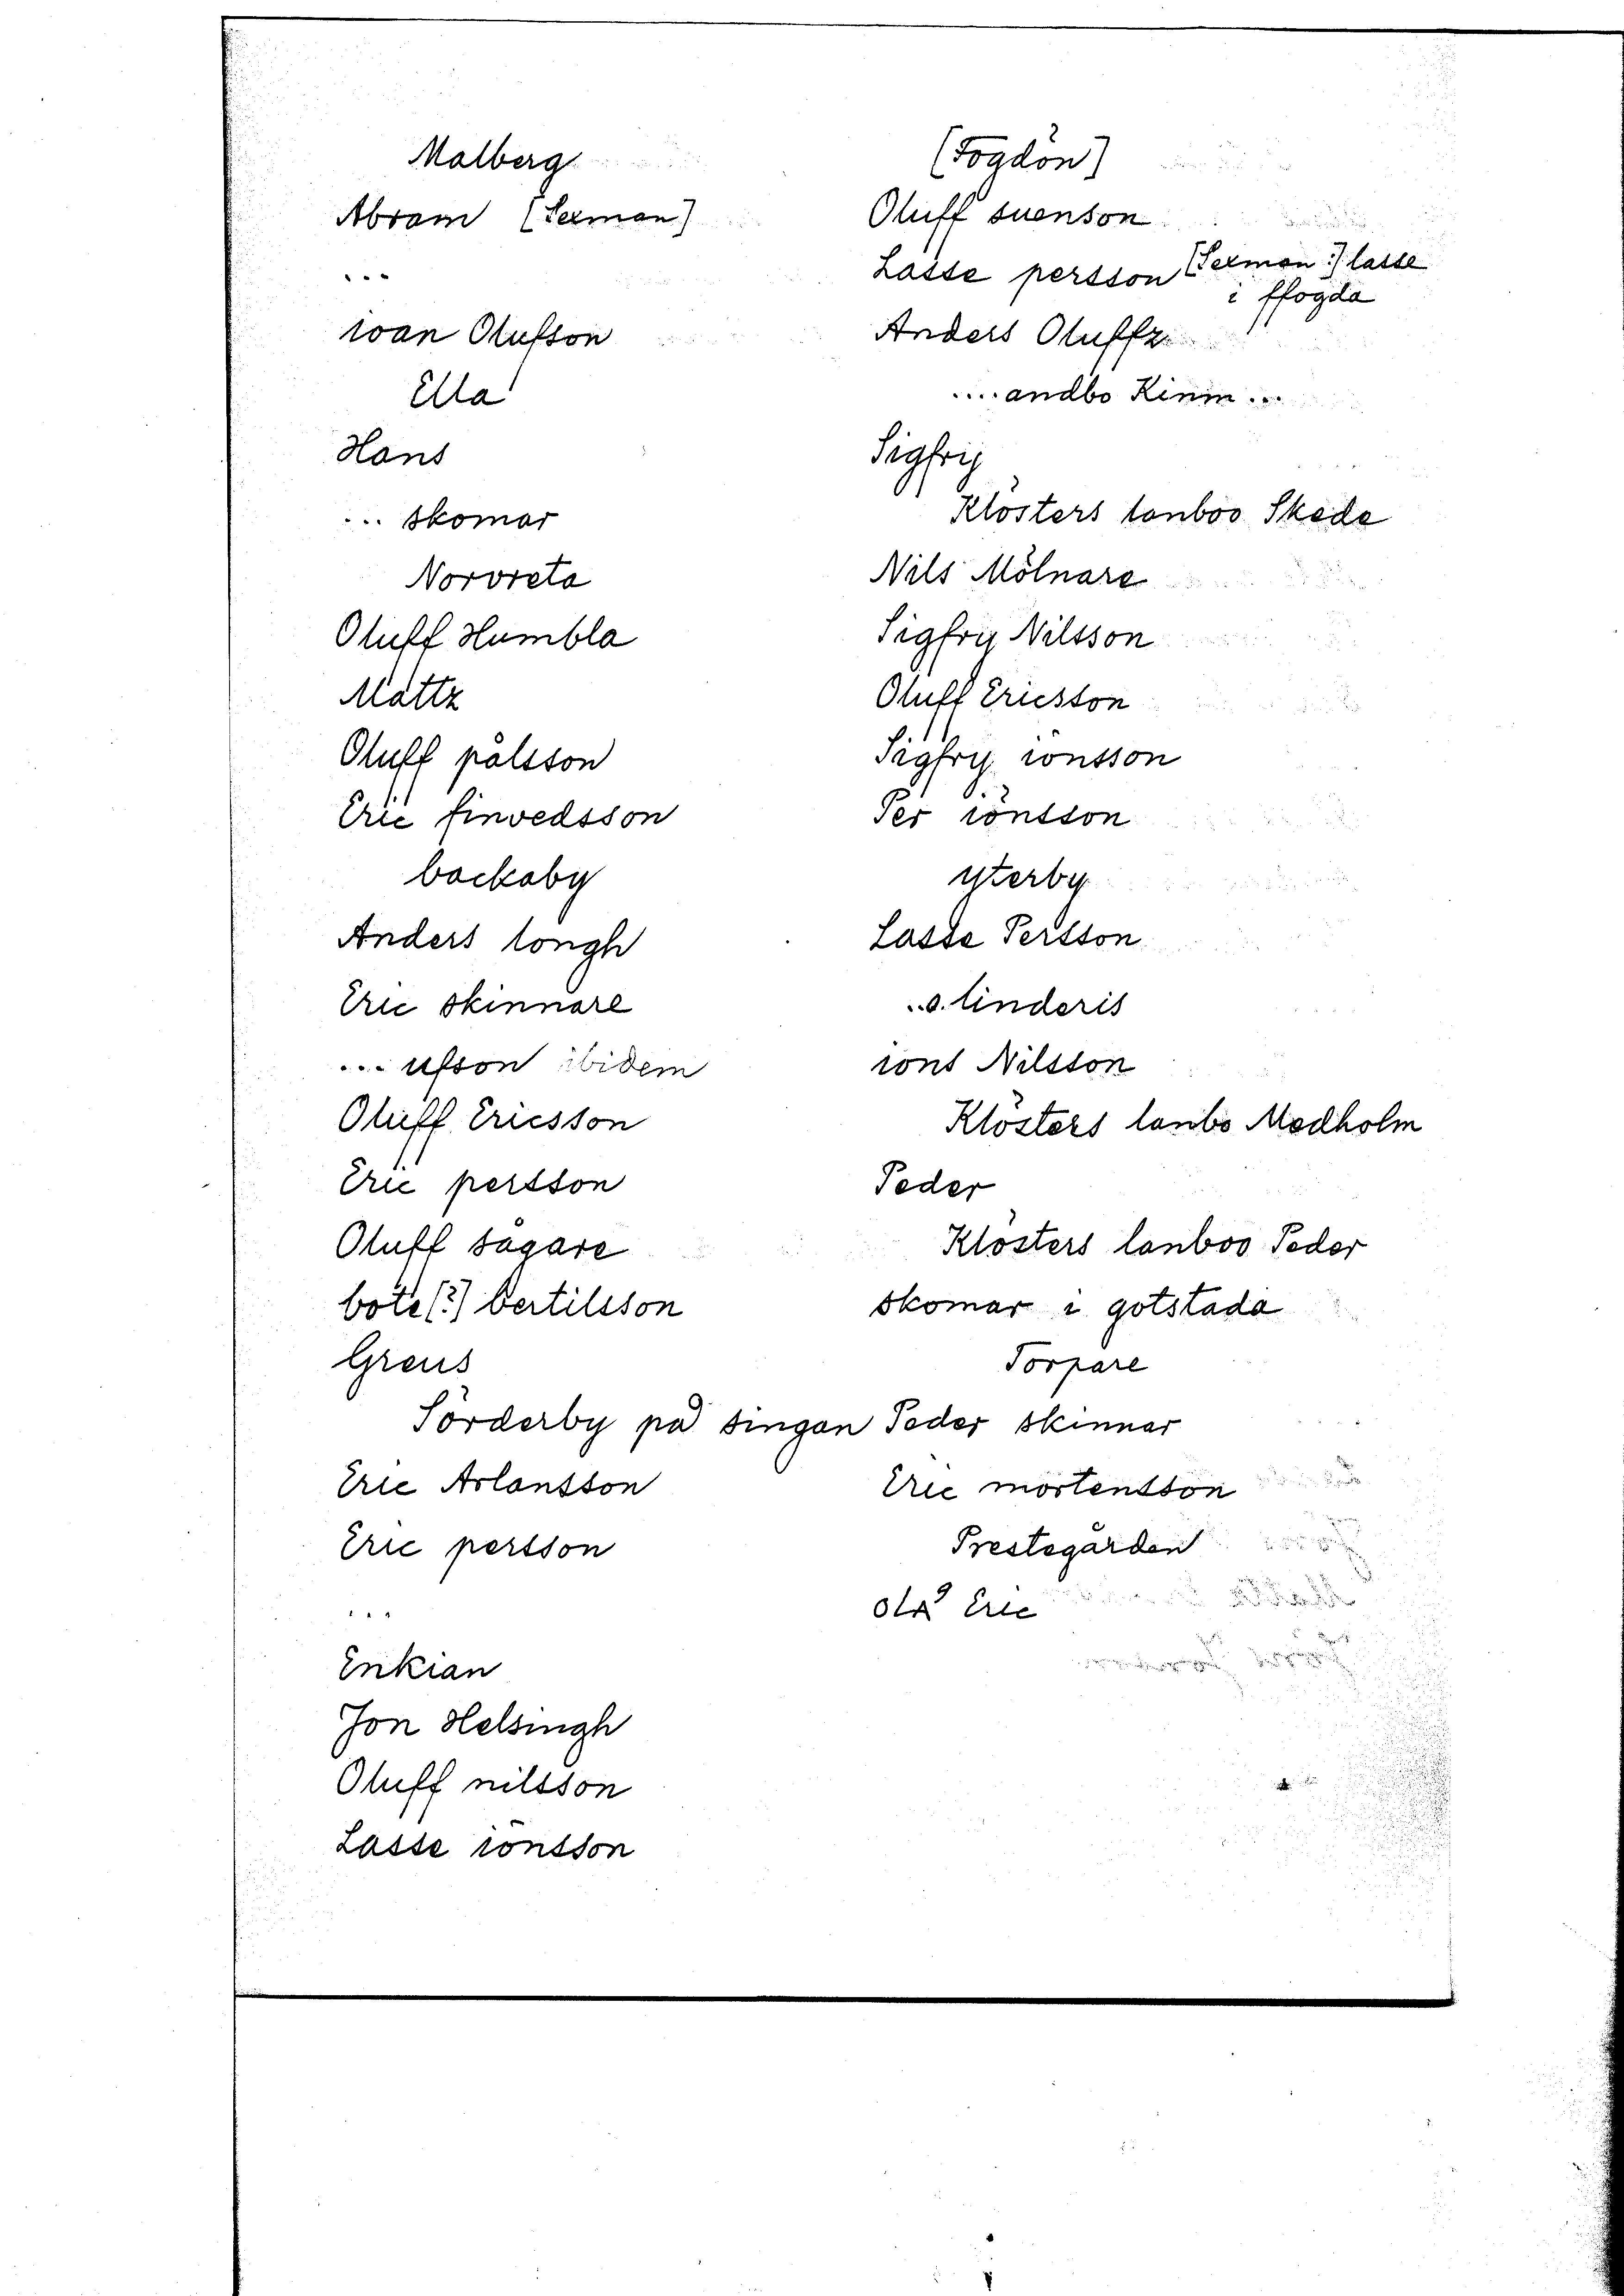 Malberg
Abram [Sexman]
...
ioan Olufson
Ella
Hans
... skomar
Norvreta
Oluff Humbla
Mattz
Oluff pålsson
Eric finvedsson
backaby
Anders longh
Eric skinnare
... ufson ibidem
Oluff Ericsson
Eric persson
Oluff sågare
bote(?) bertilsson
Greus
Sörderby på singan
Eric Arlansson
Eric persson
...
Enkian
Jon Helsingh
Oluff nilsson
Lasse ionsson
[Fogdön]
Oluff suenson
Lasse persson [Sexman:] lasse
i ffogda
Anders Oluffz
....andbo Kinm...
Sigfrij
Klösters lanboo Skede
Nils Mölnare
Sigfrij Nilsson
Oluff Ericsson
Sigfrij iönsson
Per iönsson
ÿterby
Lasse Persson
..s. linderis
ions Nilsson
Klösters lanbo Medholm
Peder
Klösters lanboo Peder
skomar i gotstada
Torpare
Peder skinnar
Eric mortensson
Prestegården
Eric